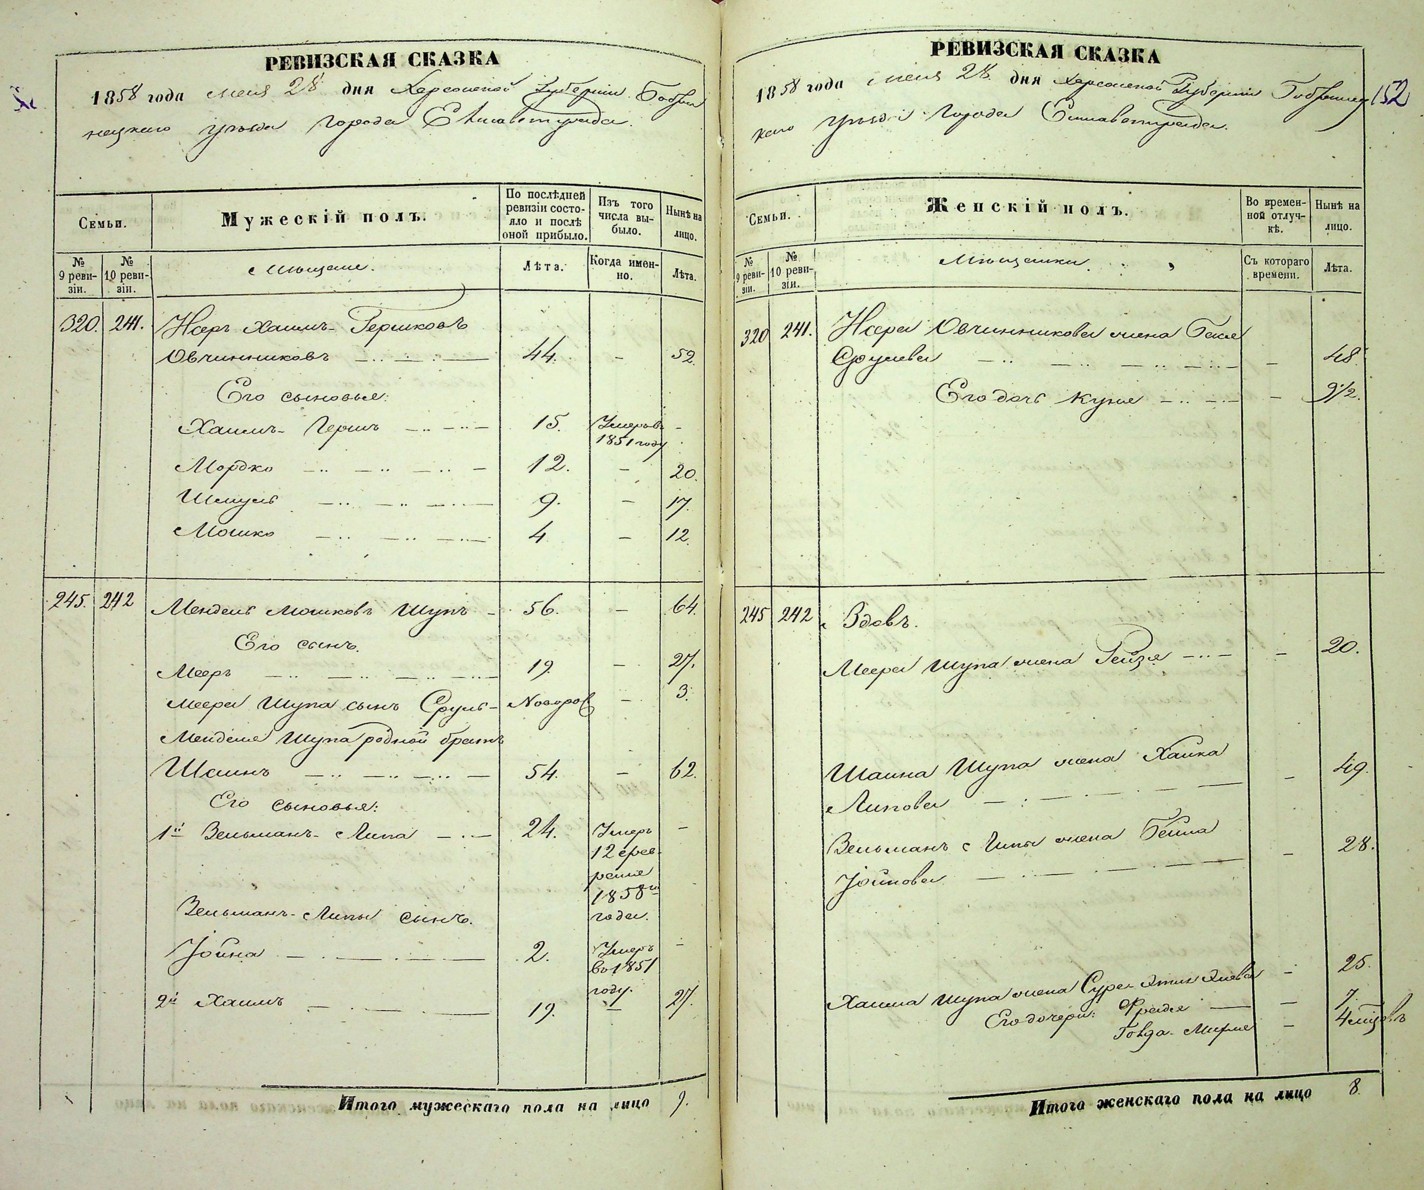 РЕВИЗСКАЯ СКАЗКА
1858 года 28 дня Херсонской Губерніи Бобри
нецкаго Уѣзда Города Елисаветграда.
Семьи.
Мужескій полъ.
По послѣдней
ревизіи состо-
яло и послѣ
оной прибыло.
Изъ того
числа вы-
было.
Нынѣ на
лицо.
№
9 реви-
зіи.
№
10 реви-
зіи.
Мѣщане.
Лѣта.
Когда имен-
но.
Лѣта.
320. 241. Хаимъ-Гершковъ
Овчинниковъ 44. – 52.
Его сыновья:
Хаимъ-Гершъ 15. Умеръ въ –
1851 году
Мордко 12. – 20.
Шмуль 9. – 17.
Мошко 4 – 12.
245. 242 Мендель Мошковъ Шупъ – 56. – 64.
Его сынъ.
Мееръ 19. – 27.
Меера Шупа сынъ Сруль – Новорож – 3.
Менделя Шупа родной братъ
Шаинъ 54. – 62.
Его сыновья:
1й Вельманъ-Липа 24. Умеръ –
12
1858го
года.
Вельманъ-Липы сынъ.
Іойна 2. Умеръ –
во 1851
году.
2й Хаимъ 19. – 27.
Итого мужескаго пола на лицо 9.
РЕВИЗСКАЯ СКАЗКА
152
1858 года 28 дня Херсонской Губерніи Бобринец
каго Уѣзда Города Елисаветграда.
Семьи.
Женскій полъ.
Во времен-
ной отлуч-
кѣ.
Нынѣ на
лицо.
№
9 реви-
зіи.
№
10 реви-
зіи.
Мѣщанки.
Съ котораго
времени.
Лѣта.
320 241. Овчинникова жена Бася
Срулева – 48
Его дочь Куня – 9½.
245 242 Вдовъ.
Меера Шупа жена Рейзя – 20.
Шаина Шупа жена Хайка
Липова – 49.
Вельманъ Липы жена Бейла
Іойнова – 28.
Хаима Шупа жена Сура – 25.
Его дочери: Фрейда – 7.
Голда-Мирля – 4 мѣсяцевъ
Итого женскаго пола на лицо 8.